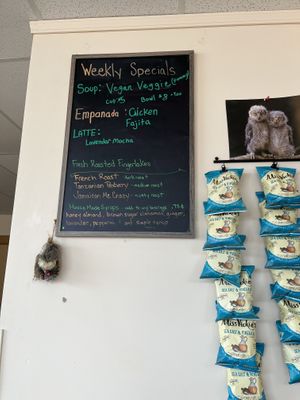 Weekly Specials
Soup: Vegan Veggie
Cup $5 Bowl $8
Empanada: Chicken
Fajita
LATTE:
Lavender Mocha
Fresh Roasted
French Roast - dark roast
Tanzanian Peaberry - medium roast
Jamaican Me Crazy -
House Made Syrups - add to any beverage .75¢
honey almond, brown sugar cinnamon, ginger,
lavender, peppermint and simple syrup
Miss Vickie's
SEA SALT &
Miss Vickie's
Miss Vickie's
Miss Vickie's